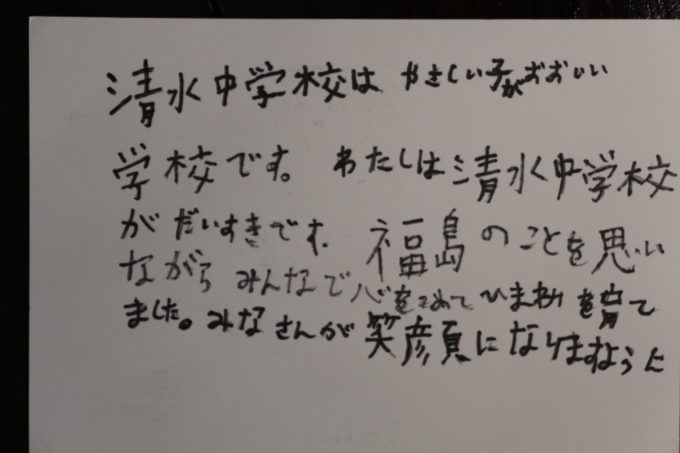 清水中学校は やさしい子がおおいい
学校です。 わたしは清水中学校
がだいすきです。福島のことを思い
ながら みんなで心をこめて ひまわりを育て
ました。みなさんが笑彦頁になりますように